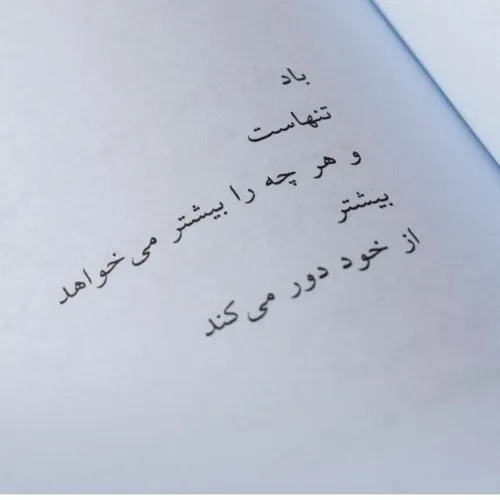 باد
تنهاست
و هر چه را بیشتر می‌خواهد
بیشتر
از خود دور می‌کند